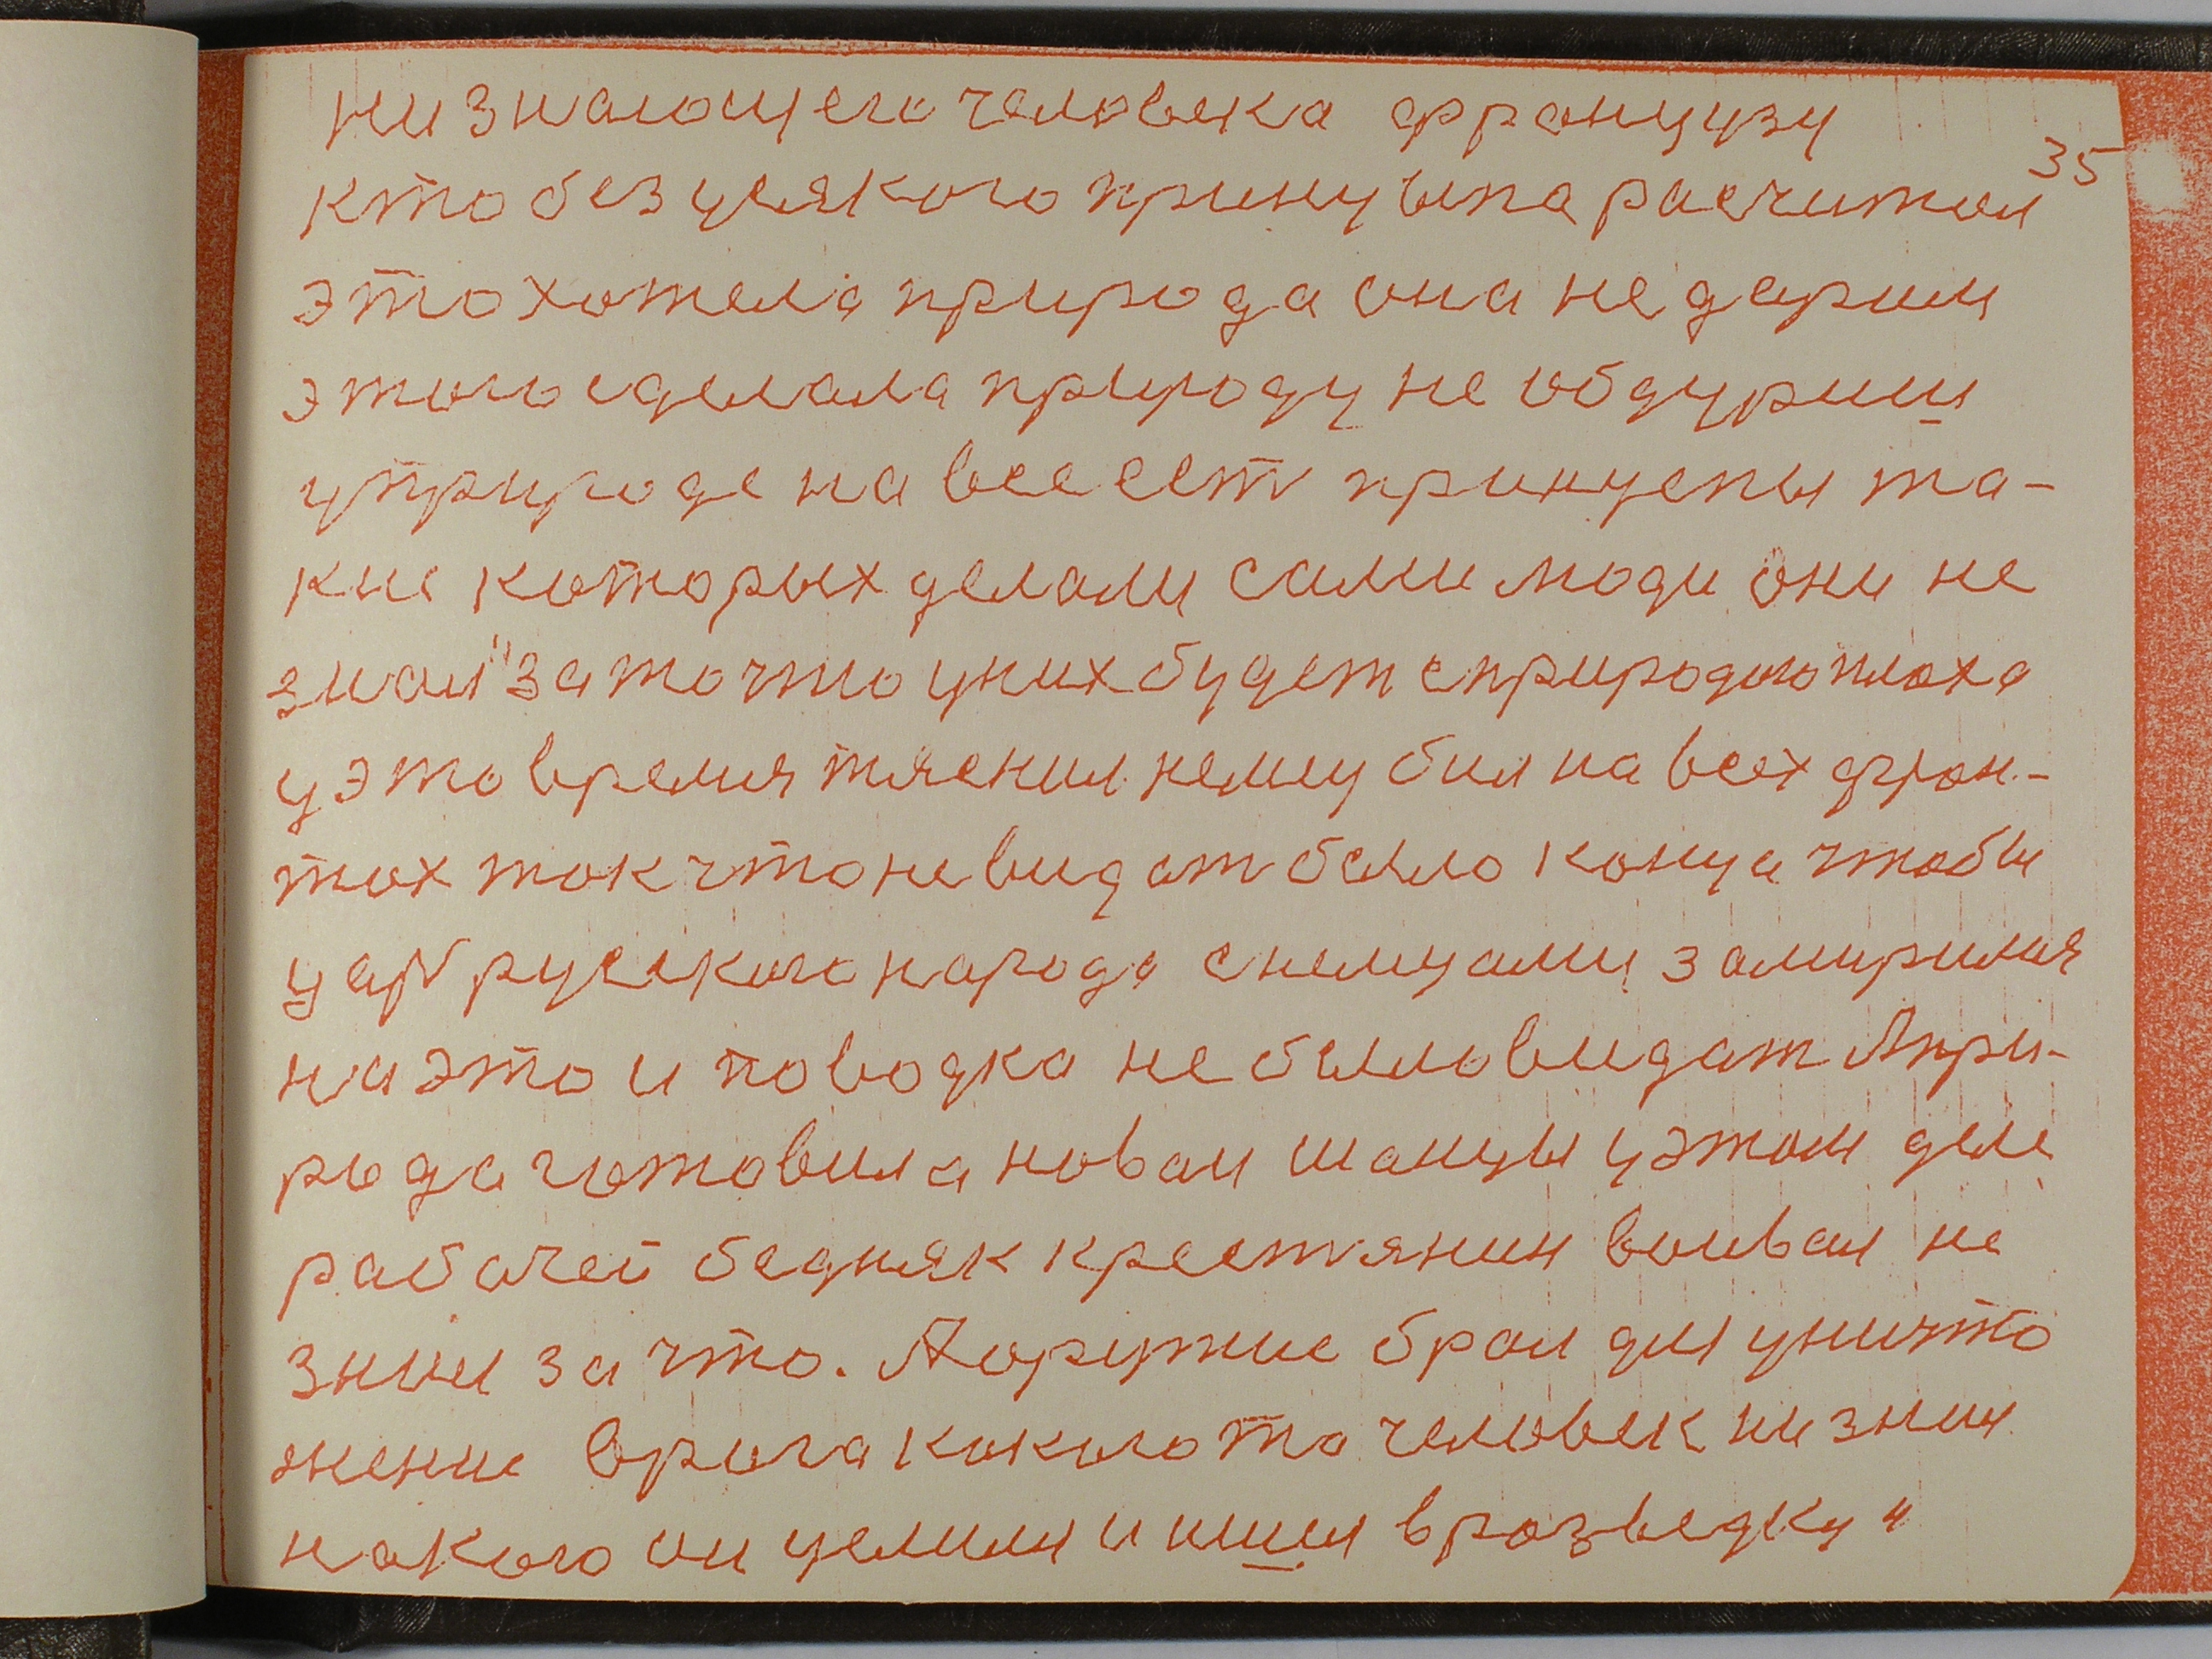 низнающего человека французу
35
кто без усякого принцыпа расчитал
это хотела природа она не дарим
этого сделала природу не обдуриш
уприроде на все ест принцепы та-
кие которых делали сами люди они не
знали за то что уних будет сприродою плоха
у это время тяснил немец бил на всех фрон-
тах так что не видат было конца чтобы
царь русского народа снемцами замирился
на это и поводка не было видат Апри-
рода готовила новаи шанцы уэтом деле
рабочей бедняк крестянин воивал не
знии за что. Аоружие брал для уничто
жение врага какого то человек низнии
накого он целиля и шшл вразьведку "